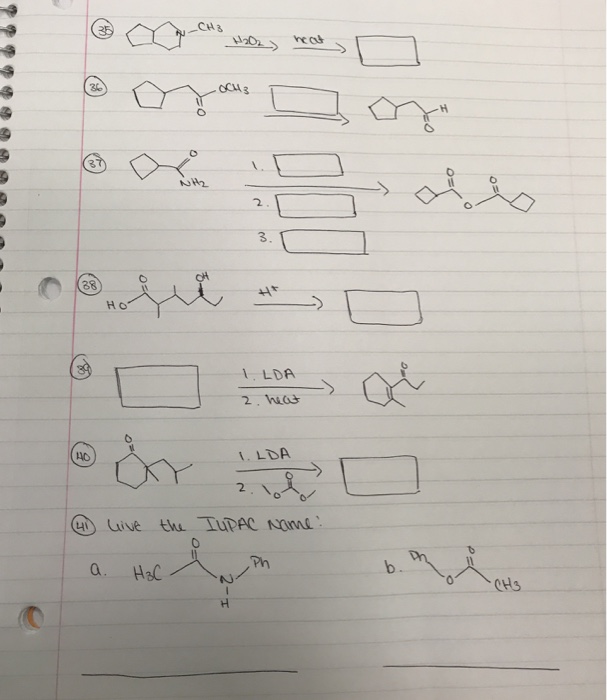 35 N-CH3 H2O2 heat
36 OCH3 O H O
37 O NH2 1. 2. 3. O O O
38 HO O OH H+
39 1. LDA 2. heat O
40 O 1. LDA 2. O O O
41 Give the IUPAC Name:
a. H3C O N Ph H b. Ph O O CH3